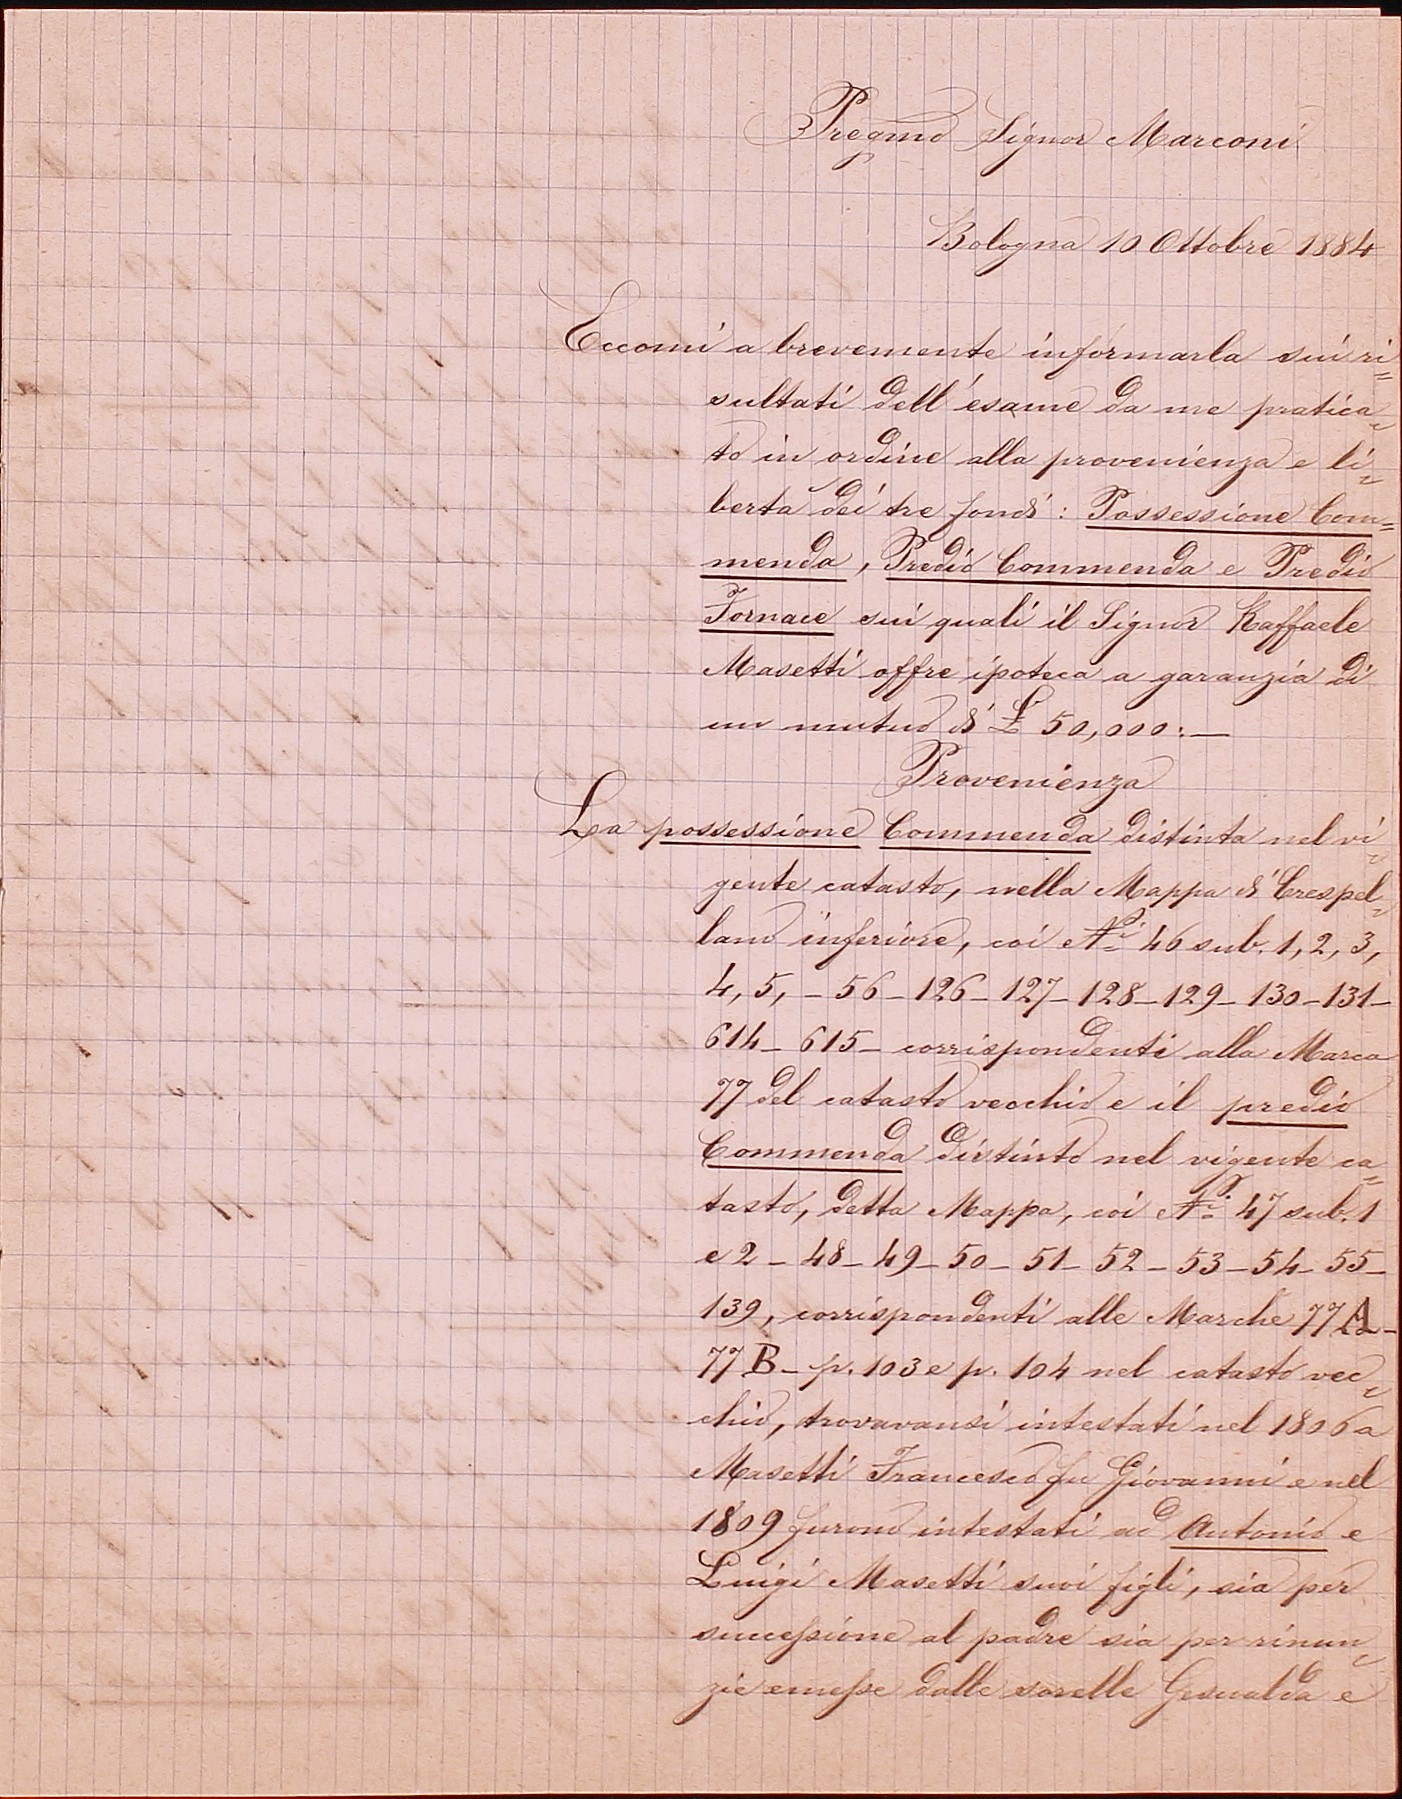 Pregmo Signor Marconi
Bologna 10 Ottobre 1884
Eccomi a brevemente informarla sui ri=
sultati dell'esame da me pratica=
to in ordine alla provenienza e li=
bertà dei tre fondi: Possessione Com=
menda, Predio Commenda e Predio
Fornace sui quali il Signor Raffaele
Masetti offre ipoteca a garanzia di
un mutuo di £ 50,000:—
Provenienza
La possessione Commenda distinta nel vi=
gente catasto, nella Mappa di Crespel=
lano inferiore, coi Ni 46 sub. 1, 2, 3,
4, 5, – 56 – 126 – 127 – 128 – 129 – 130 – 131 –
614 – 615 – corrispondenti alla Marca
77 del catasto vecchio e il predio
Commenda distinto nel vigente ca=
tasto, detta Mappa, coi Ni 47 sub. 1
e 2 – 48 – 49 – 50 – 51 – 52 – 53 – 54 – 55 –
139, corrispondenti alle Marche 77 A –
77 B – p. 103 e p. 104 nel catasto vec=
chio, trovavansi intestati nel 1806 a
Masetti Francesco fu Giovanni e nel
1809 furono intestati ad Antonio e
Luigi Masetti suoi figli, sia per
successione al padre sia per rinun=
zie emesse dalle sorelle Gesualda e